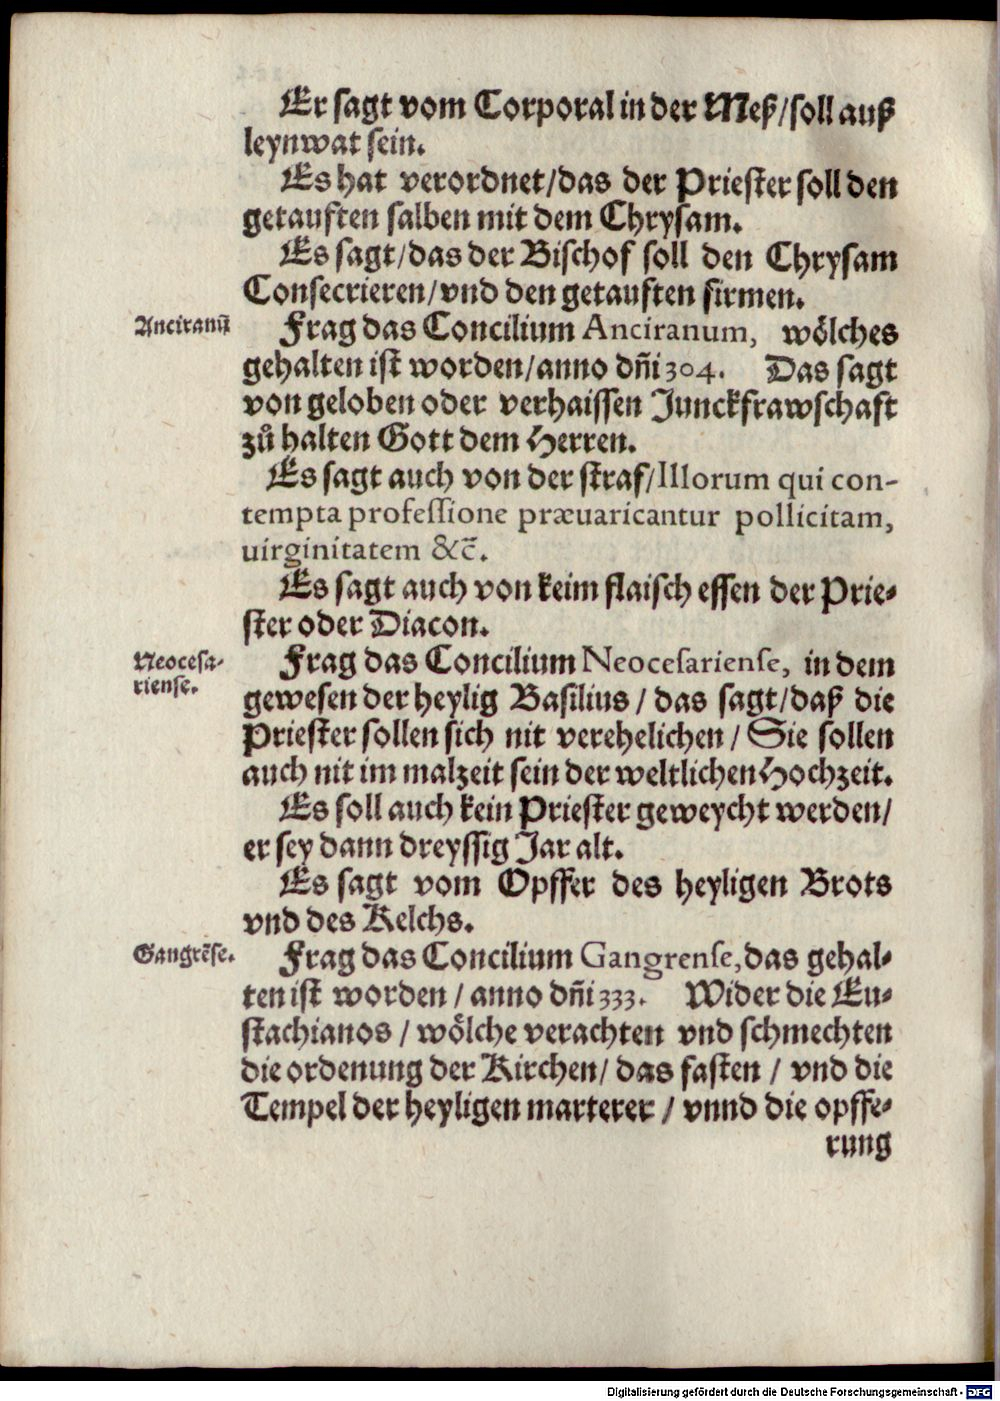 Er sagt vom Corporal in der Meß/soll auß
leynwat sein.
Es hat verordnet/das der Priester soll den
getaufften salben mit dem Chrysam.
Es sagt/das der Bischof soll den Chrysam
Consecrieren/vnd den getaufften firmen.
Anciranū
Frag das Concilium Anciranum, wölches
gehalten ist worden/anno dn̄i 304. Das sagt
von geloben oder verhaissen Junckfrawschafft
zů halten Gott dem Herren.
Es sagt auch von der straf/Illorum qui con-
tempta professione præuaricantur pollicitam,
uirginitatem &c̄.
Es sagt auch von keim flaisch essen der Prie-
ster oder Diacon.
Neocesa-
riense.
Frag das Concilium Neocesariense, in dem
gewesen der heylig Basilius / das sagt/daß die
Priester sollen sich nit verehelichen / Sie sollen
auch nit im malzeit sein der weltlichen Hochzeit.
Es soll auch kein Priester geweycht werden/
er sey dann dreyssig Jar alt.
Es sagt vom Opffer des heyligen Brots
vnd des Kelchs.
Gangrēse.
Frag das Concilium Gangrense, das gehal-
ten ist worden / anno dn̄i 333. Wider die Eu-
stachianos / wölche verachten vnd schmechten
die ordenung der Kirchen/ das fasten / vnd die
Tempel der heyligen marterer / vnnd die opffe-
rung
Digitalisierung gefördert durch die Deutsche Forschungsgemeinschaft - DFG